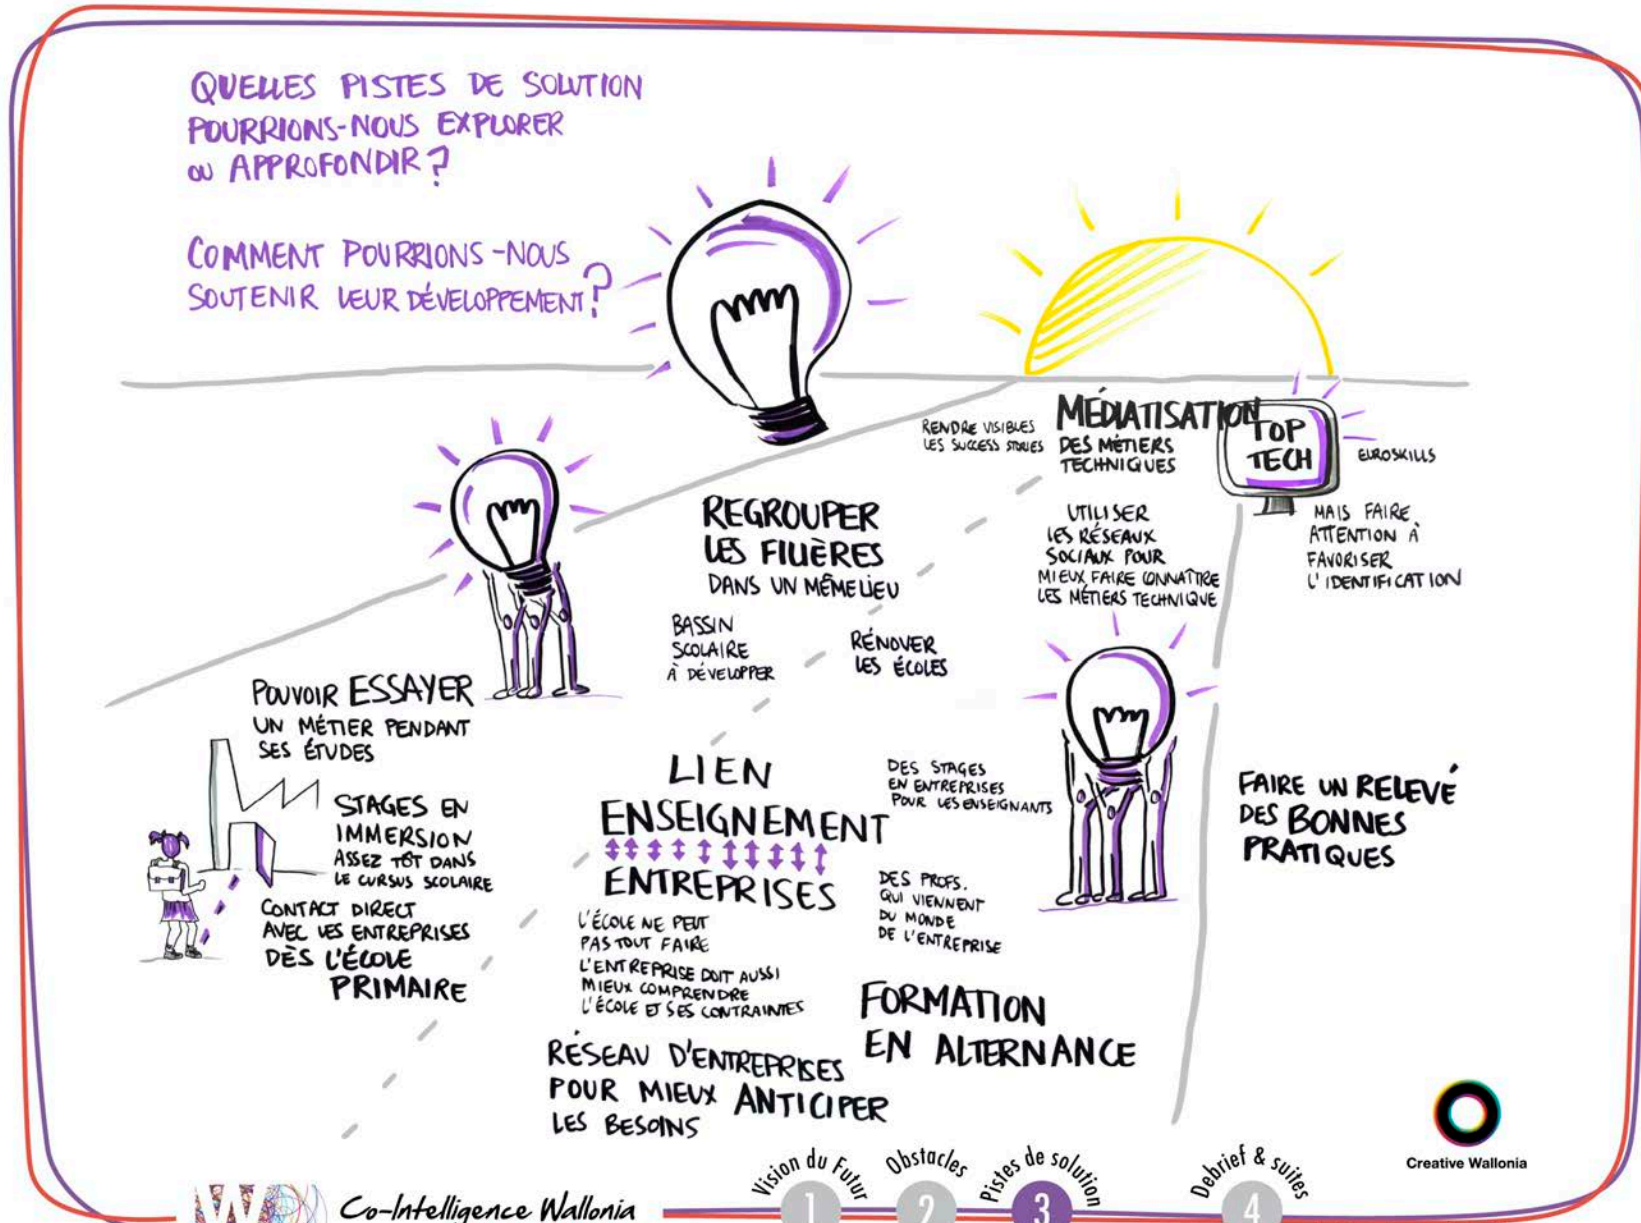 QUELLES PISTES DE SOLUTION
POURRIONS-NOUS EXPLORER
OU APPROFONDIR ?
COMMENT POURRIONS-NOUS
SOUTENIR LEUR DÉVELOPPEMENT ?
RENDRE VISIBLES
LES SUCCESS STORIES
MÉDIATISATION
DES MÉTIERS
TECHNIQUES
TOP
TECH
EUROSKILLS
UTILISER
LES RÉSEAUX
SOCIAUX POUR
MIEUX FAIRE CONNAÎTRE
LES MÉTIERS TECHNIQUE
MAIS FAIRE
ATTENTION À
FAVORISER
L'IDENTIFICATION
REGROUPER
LES FILIÈRES
DANS UN MÊME LIEU
BASSIN
SCOLAIRE
À DÉVELOPPER
RÉNOVER
LES ÉCOLES
POUVOIR ESSAYER
UN MÉTIER PENDANT
SES ÉTUDES
STAGES EN
IMMERSION
ASSEZ TÔT DANS
LE CURSUS SCOLAIRE
CONTACT DIRECT
AVEC LES ENTREPRISES
DÈS L'ÉCOLE
PRIMAIRE
LIEN
ENSEIGNEMENT
ENTREPRISES
L'ÉCOLE NE PEUT
PAS TOUT FAIRE
L'ENTREPRISE DOIT AUSSI
MIEUX COMPRENDRE
L'ÉCOLE ET SES CONTRAINTES
DES STAGES
EN ENTREPRISES
POUR LES ENSEIGNANTS
DES PROFS.
QUI VIENNENT
DU MONDE
DE L'ENTREPRISE
FAIRE UN RELEVÉ
DES BONNES
PRATIQUES
FORMATION
EN ALTERNANCE
RÉSEAU D'ENTREPRISES
POUR MIEUX ANTICIPER
LES BESOINS
Creative Wallonia
W
Co-Intelligence Wallonia
Vision du Futur
1
Obstacles
2
Pistes de solution
3
Debrief & suites
4